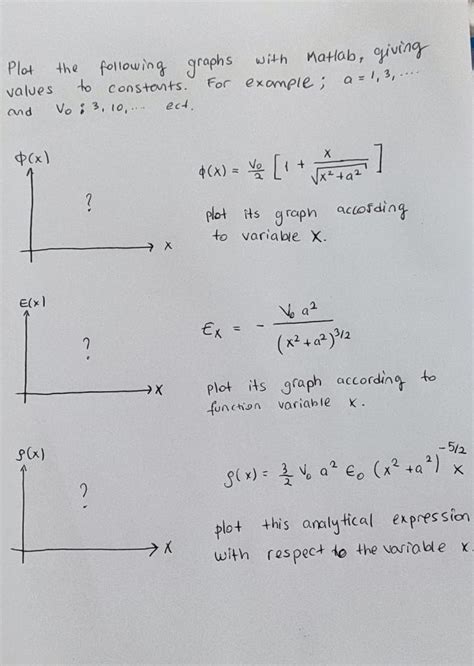 Plot the following graphs with Matlab, giving
values to constants. For example; a = 1, 3, ....
and V₀ : 3, 10, ... ect.
ϕ(x)
?
x
ϕ(x) = V₀/2 [1 + x/√(x² + a²)]
plot its graph according
to variable x.
E(x)
?
x
Ex = - V₀ a²/(x² + a²)^3/2
plot its graph according to
function variable x.
ρ(x)
?
x
ρ(x) = 3/2 V₀ a² ϵ₀ (x² + a²)^-5/2 x
plot this analytical expression
with respect to the variable x.